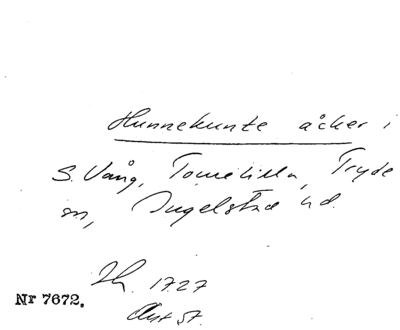 Hunnekunte åcker i
S. Vång, Tomelilla, Tryde
sn, Ingelstad hd.
Lh. 1727
Nr 7672.
Akt 57.